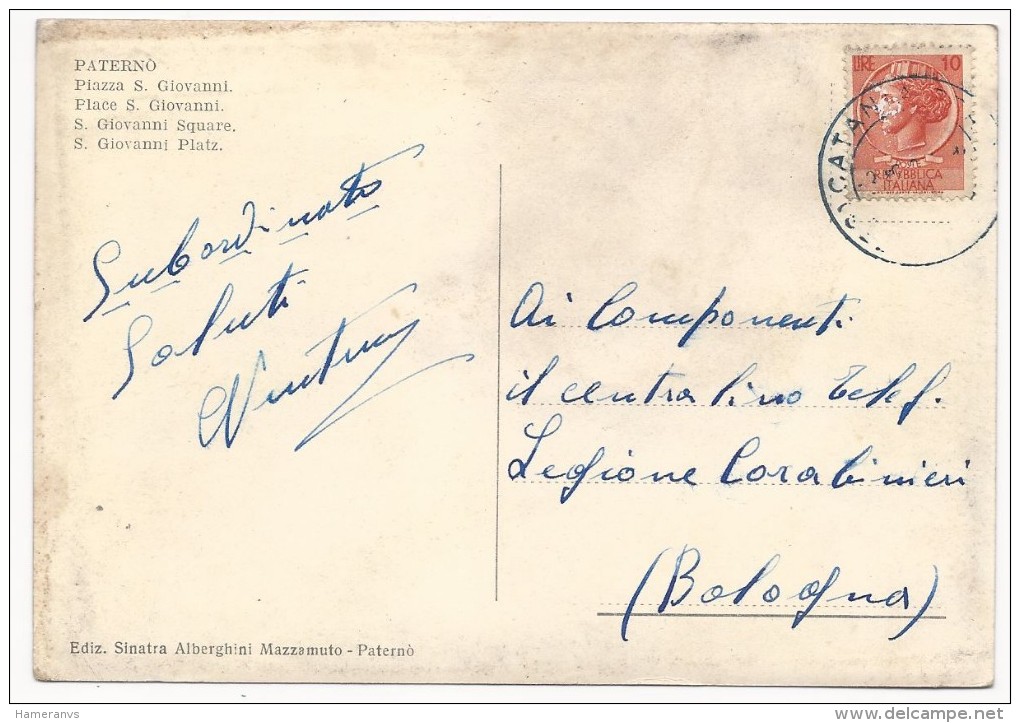 PATERNÒ
Piazza S. Giovanni.
Place S. Giovanni.
S. Giovanni Square.
S. Giovanni Platz.
LIRE 10
REPVBBLICA
ITALIANA
CATANIA
Subordinati
Saluti
Ai Componenti
il centralino Telef.
Legione Carabinieri
(Bologna)
Ediz. Sinatra Alberghini Mazzamuto - Paternò
Hameranvs
www.delcampe.net